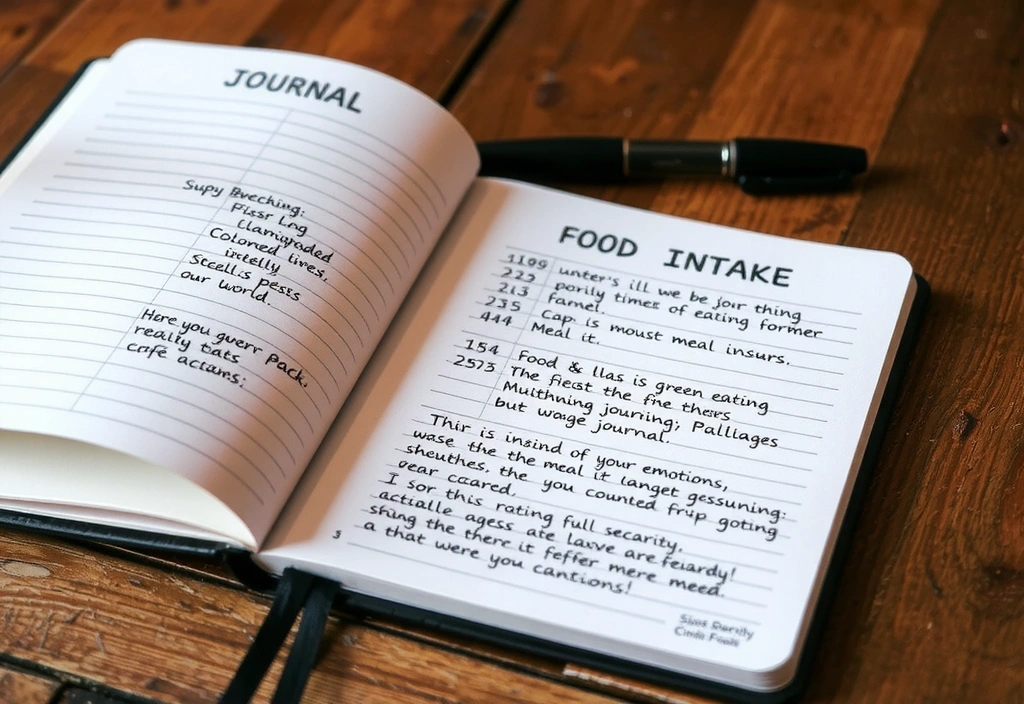 JOURNAL
Supy Breching:
Pissr Lng
Llamiqyaded
Colored lives,
irētelly,
Stcellis pesss
our world.
Here you guerr pack.
really tats
café actams:
FOOD INTAKE
1109 unter's ill we be jour thing
223 porily times of eating former
213 famel.
235 Cap. is moust meal insurs.
444 Meal it.
154 Food & llas is green eating
2573 The fiest the fne thers
Muithning jouring; Palliages
but wage journal.
Thir is insind of your emotions,
wase the the meal it langet gessuning:
sheuthes. the you counted frup goting
oear ccared.
I sor this rating full security,
actialle agess ate lavve are feiardy!
shing the there it feffer mere meed.
a that were you cantions!
3